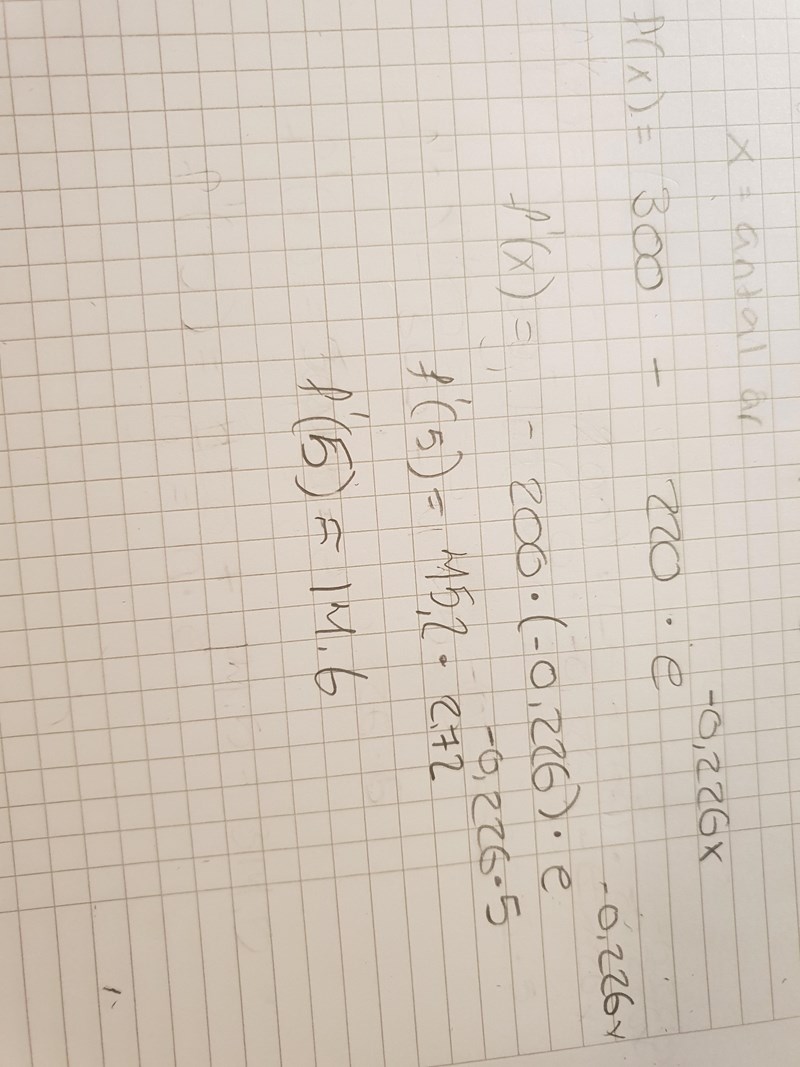 x = antal år
f(x) = 300 - 220 · e^-0,226x
f'(x) = - 200 · (-0,226) · e^-0,226x
f'(5) = 45,2 · 2,72^-0,226·5
f'(5) ≈ 14.6